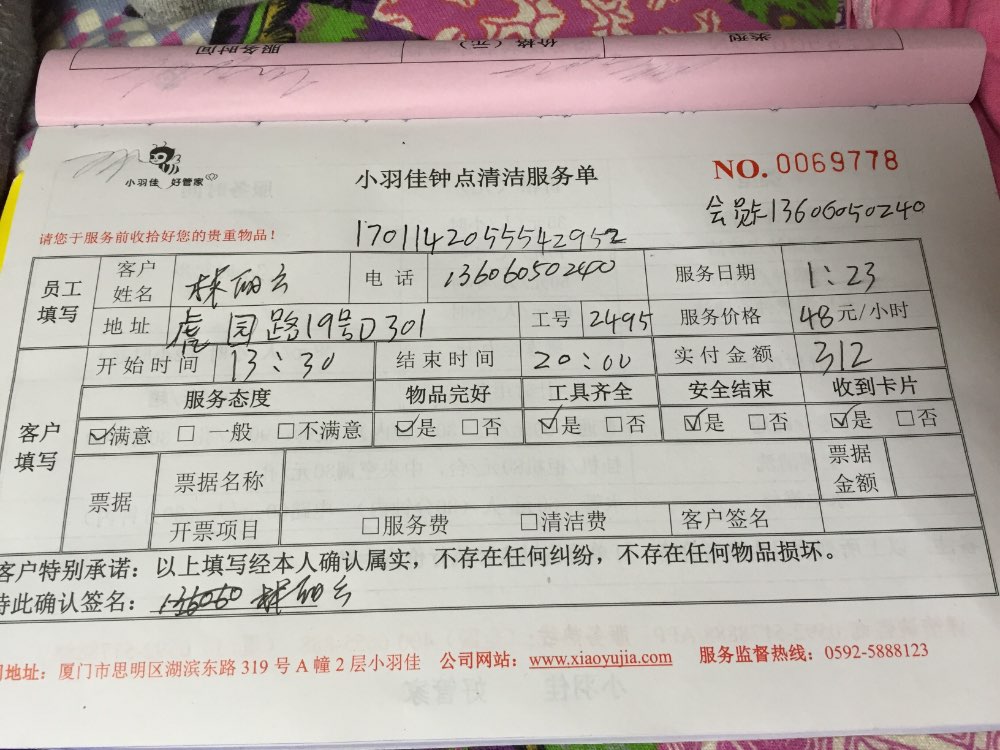 服务时间 价格（元） 类型
小羽佳 好管家
小羽佳钟点清洁服务单
NO. 0069778
会员卡13606050240
请您于服务前收拾好您的贵重物品！
1701142055542952
员工填写 客户姓名 林丽云 电话 13606050240 服务日期 1:23
地址 虎园路19号D301 工号 2495 服务价格 48元/小时
客户填写 开始时间 13:30 结束时间 20:00 实付金额 312
服务态度 物品完好 工具齐全 安全结束 收到卡片
☑满意 □一般 □不满意 ☑是 □否 ☑是 □否 ☑是 □否 ☑是 □否
票据 票据名称 票据金额
开票项目 □服务费 □清洁费 客户签名
客户特别承诺：以上填写经本人确认属实，不存在任何纠纷，不存在任何物品损坏。
特此确认签名：136060 林丽云
地址：厦门市思明区湖滨东路 319 号 A 幢 2 层小羽佳 公司网站：www.xiaoyujia.com 服务监督热线：0592-5888123